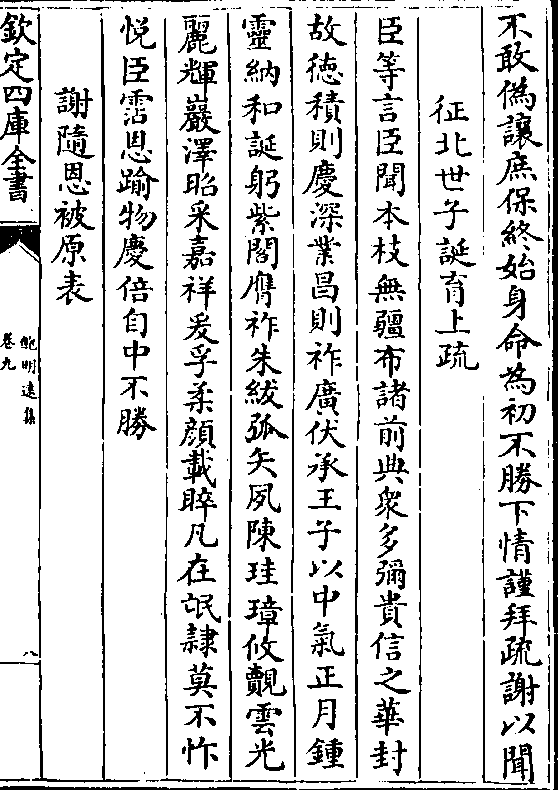 不敢偽讓庶保終始身命為初不勝下情謹拜疏謝以聞
征北世子誕育上疏
臣等言臣聞本枝無疆布諸前典衆多彌貴信之華封
故徳積則慶深業昌則祚廣伏承王子以中氣正月鍾
靈納和誕躬紫閤膺祚朱紱弧矢夙陳珪璋攸覿雲光
麗輝巖澤昭采嘉祥爰孚柔顔載睟凡在氓隷莫不忭
悦臣霑恩踰物慶倍自中不勝
謝隨恩被原表
欽定四庫全書
鮑明遠集
卷九
八